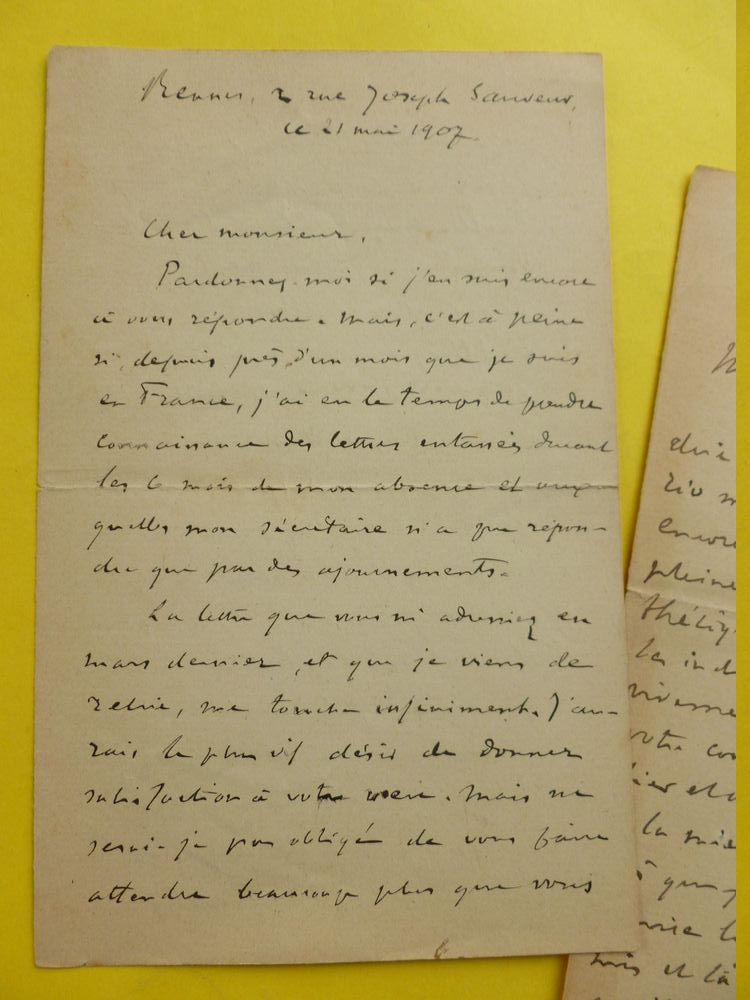 Rennes, 2 rue Joseph Sauveur,
ce 21 mai 1907.
Cher monsieur,
Pardonnez-moi si j'en suis encore
à vous répondre. Mais, c'est à peine
si, depuis près d'un mois que je suis
en France, j'ai eu le temps de prendre
connaissance des lettres entassées durant
les 6 mois de mon absence et aux-
quelles mon secrétaire n'a pu répon-
dre que par des ajournements.
La lettre que vous m'adressiez en
mars dernier, et que je viens de
relire, me touche infiniment. J'au-
rais le plus vif désir de donner
satisfaction à votre vœu. Mais ne
serai-je pas obligé de vous faire
attendre beaucoup plus que vous
rio
encore
pleine
la
votre
la
à que
mais et là